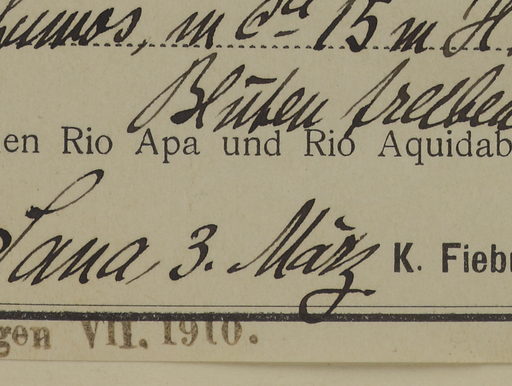 in ca 15 m H.
Blüten treiben
en Rio Apa und Rio Aquidab
3. März K. Fieb
gen VII. 1910.